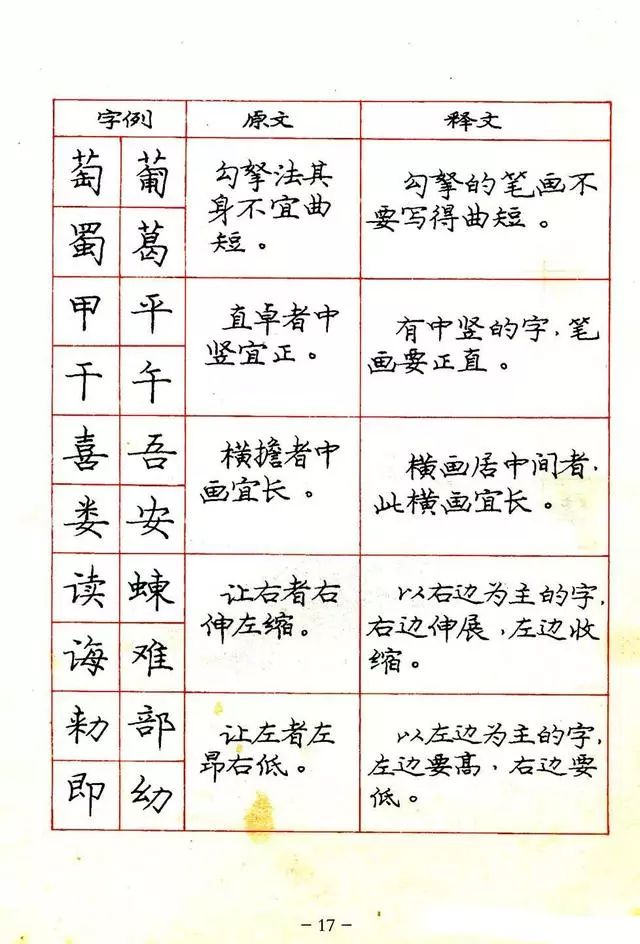 字例 原文 释文
萄 葡
蜀 葛
勾拏法其
身不宜曲
短。
勾拏的笔画不
要写得曲短。
甲 平
干 午
直卓者中
竖宜正。
有中竖的字,笔
画要正直。
喜 吾
娄 安
横擔者中
画宜长。
横画居中间者,
此横画宜长。
读 蝀
诲 难
让右者右
伸左缩。
以右边为主的字,
右边伸展,左边收
缩。
勑 部
即 幼
让左者左
昂右低。
以左边为主的字,
左边要高,右边要
低。
- 17 -